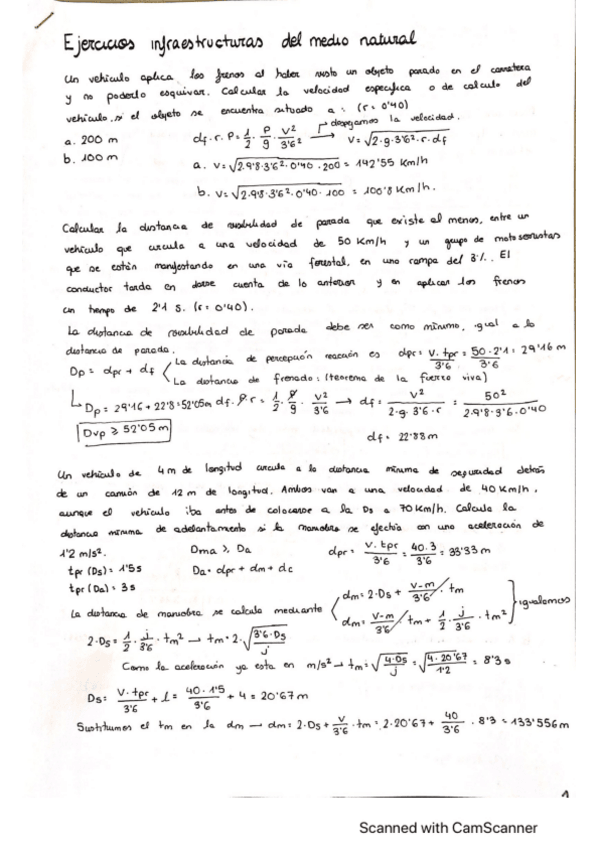 Ejercicios infraestructuras del medio natural
Un vehículo aplica los frenos al haber visto un objeto parado en el carretera
y no poderlo esquivar. Calcular la velocidad específica o de calculo del
vehículo, si el objeto se encuentra situado a: (r = 0'40)
a. 200 m
b. 100 m
df. r. P = 1/2 · P/g · V²/3'6² → despejamos la velocidad. V = √2·g·3'6²·r·df
a. V = √2·9'8·3'6²·0'40·200 = 142'55 Km/h
b. V = √2·9'8·3'6²·0'40·100 = 100'8 Km/h.
Calcular la distancia de visibilidad de parada que existe al menos, entre un
vehículo que circula a una velocidad de 50 Km/h y un grupo de motoserristas
que se están manifestando en una vía forestal, en una rampa del 3%. El
conductor tarda en darse cuenta de lo anterior y en aplicar los frenos
un tiempo de 2'1 s. (r = 0'40).
La distancia de visibilidad de parada debe ser como mínimo, igual a la
distancia de parada.
Dp = dpr + df
La distancia de percepción reacción es dpr = V. tpr/3'6 = 50·2'1/3'6 = 29'16 m
La distancia de frenado: (teorema de la fuerza viva)
Dp = 29'16 + 22'8 = 52'05m df. P. r = 1/2 · P/g · V²/3'6 → df = V²/2·g·3'6·r = 50²/2·9'8·3'6·0'40
Dvp ≥ 52'05 m
df = 22'88 m
Un vehículo de 4 m de longitud circula a la distancia mínima de seguridad detrás
de un camión de 12 m de longitud. Ambos van a una velocidad de 40 Km/h,
aunque el vehículo iba antes de colocarse a la Ds a 70 Km/h. Calcula la
distancia mínima de adelantamiento si la maniobra se efectúa con una aceleración de
1'2 m/s².
Dma ≥ Da
dpr = V. tpr/3'6 = 40·3/3'6 = 33'33 m
tpr (Ds) = 1'5s
Da = dpr + dm + dc
tpr (Da) = 3s
La distancia de maniobra se calcula mediante
dm = 2·Ds + V-m/3'6 · tm
dm = V-m/3'6 · tm + 1/2 · j/3'6 · tm²
igualamos
2·Ds = 1/2 · j/3'6 · tm² → tm = 2·√3'6·Ds/j
Como la aceleración ya esta en m/s² → tm = √4·Ds/j = √4·20'67/1'2 = 8'3 s
Ds = V. tpr/3'6 + l = 40·1'5/3'6 + 4 = 20'67 m
Sustituimos el tm en la dm → dm = 2·Ds + V/3'6 · tm = 2·20'67 + 40/3'6 · 8'3 = 133'556 m
1
Scanned with CamScanner